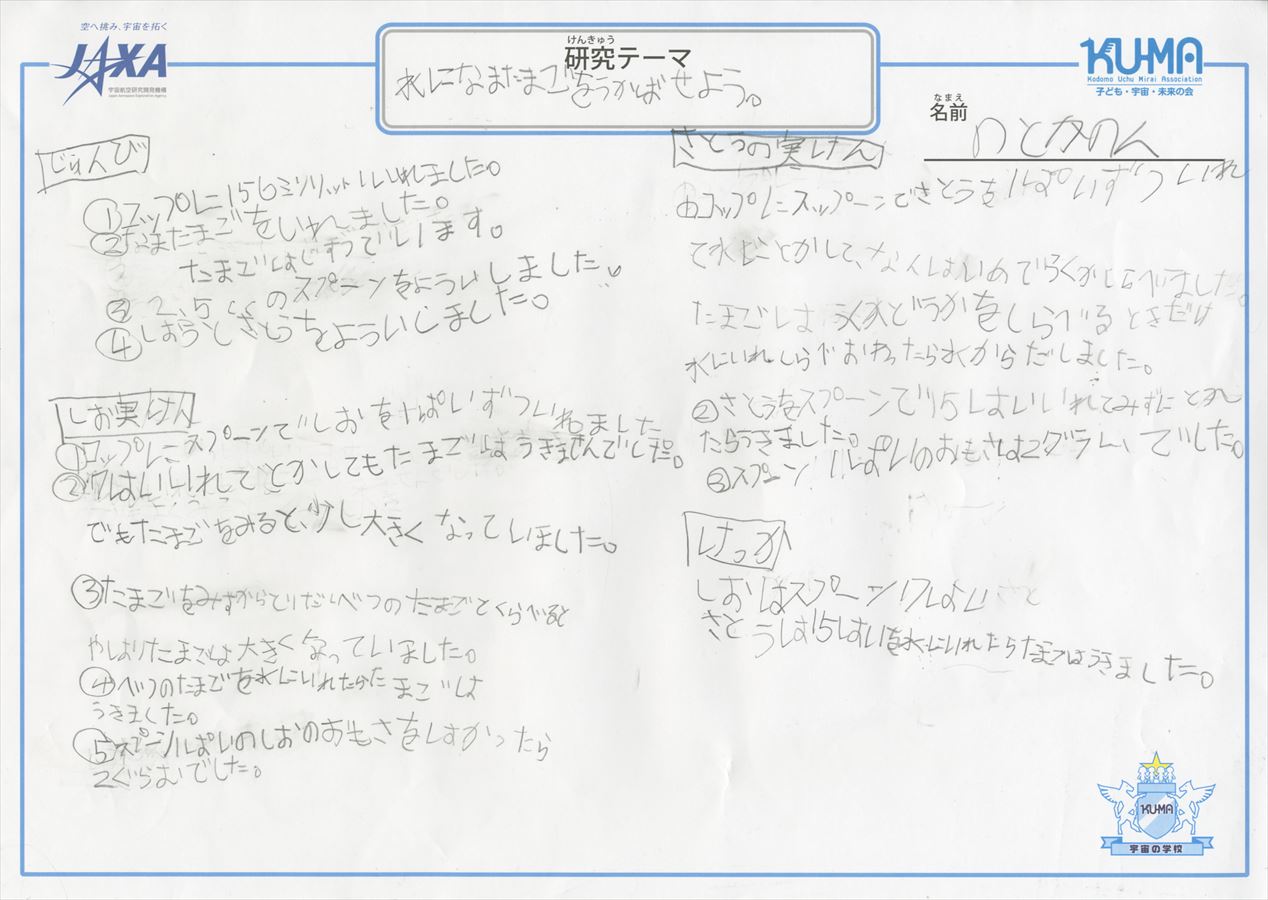 空へ挑み、宇宙を拓く
JAXA
宇宙航空研究開発機構
Japan Aerospace Exploration Agency
けんきゅう
研究テーマ
水になまたまごをうかばせよう。
KU-MA
Kodomo Uchu Mirai Association
子ども・宇宙・未来の会
なまえ
名前
じゅんび
①コップに150ミリリットいれました。
②なまたまごをいれました。
たまごはしずんでいます。
③2.5ccのスプーンをよういしました。
④しおとさとうをよういしました。
しお実けん
①コップにスプーンでしおを1ぱいずついれました
②7はいいれてとかしてもたまごはうきませんでした。
でもたまごをみると、少し大きくなっていました。
③たまごをみずからとりだしべつのたまごとくらべると
やはりたまごは大きくなっていました。
④べつのたまごを水にいれたらたまごは
うきました。
⑤スプーン1ぱいのしおのおもさをはかったら
2ぐらむでした。
さとうの実けん
①コップにスップーンでさとうを1ぱいずついれ
て水でとかして、なんばいめでうくかしらべました。
たまごはうくかどうかをしらべるときだけ
水にいれしらべおわったら水からだしました。
②さとうをスプーンで15はいいれてみずにとれ
たらうきました。
③スプーン1ぱいのおもさは2グラム、でした。
けっか
しおはスプーン7はい
さとうは15はいを水にいれたらたまごはうきました。
KU-MA
宇宙の学校